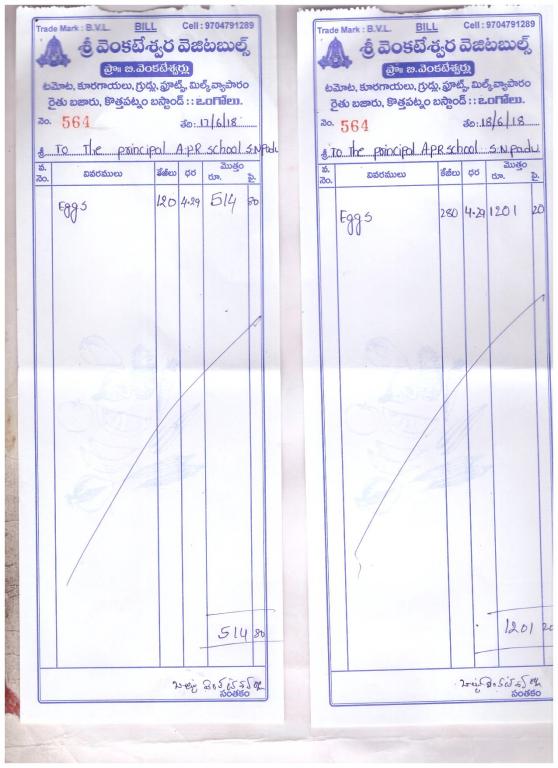 Trade Mark : B.V.L. BILL Cell : 9704791289
శ్రీ వెంకటేశ్వర వెజిటబుల్స్
ప్రొః బి.వెంకటేశ్వర్లు
టమోట, కూరగాయలు, గ్రుడ్లు, ఫ్రూట్స్, మిల్క్ వ్యాపారం
రైతు బజారు, కొత్తపట్నం బస్టాండ్ :: ఒంగోలు.
నెం. 564 తేది: 17/6/18
శ్రీ To The principal A.P.R school S.NPadu
వ.నెం. వివరములు కేజీలు ధర మొత్తం రూ. పై.
Eggs 120 4.29 514 80
514 80
సంతకం
Trade Mark : B.V.L. BILL Cell : 9704791289
శ్రీ వెంకటేశ్వర వెజిటబుల్స్
ప్రొః బి.వెంకటేశ్వర్లు
టమోట, కూరగాయలు, గ్రుడ్లు, ఫ్రూట్స్, మిల్క్ వ్యాపారం
రైతు బజారు, కొత్తపట్నం బస్టాండ్ :: ఒంగోలు.
నెం. 564 తేది: 18/6/18
శ్రీ To The principal A.P.R school S.N.Padu
వ.నెం. వివరములు కేజీలు ధర మొత్తం రూ. పై.
Eggs 280 4.29 1201 20
1201 20
సంతకం